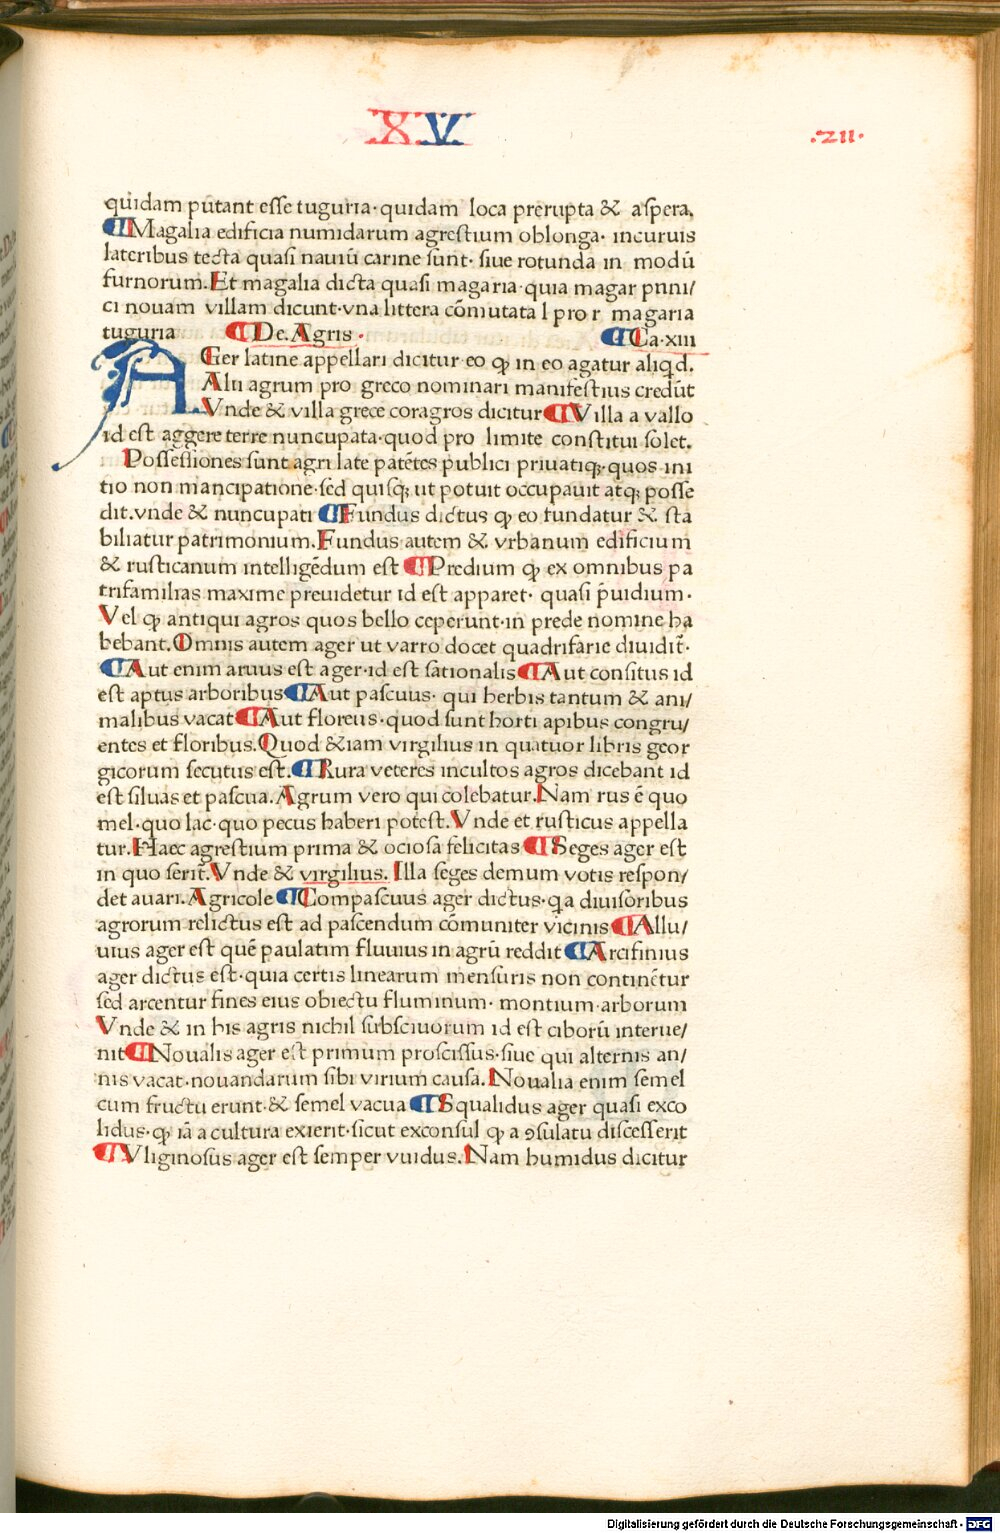 XV
·211·
quidam putant esse tuguria·quidam loca prerupta & aspera.
¶Magalia edificia numidarum agrestium oblonga· incuruis
lateribus tecta quasi nauiū carine sunt· siue rotunda in modū
furnorum.Et magalia dicta quasi magaria·quia magar pnni/
ci nouam villam dicunt·vna littera cōmutata l pro r magaria
tuguria ¶De.Agris· ¶Ca·xiii
AGer latine appellari dicitur eo ꝙ in eo agatur aliqd.
Alii agrum pro greco nominari manifestius credūt
Vnde & villa grece coragros dicitur¶Villa a vallo
id est aggere terre nuncupata·quod pro limite constitui solet.
Possessiones sunt agri late patētes publici priuatiqꝫ·quos ini
tio non mancipatione·sed quisqꝫ ut potuit occupauit atqꝫ posse
dit.vnde & nuncupati ¶Fundus dictus ꝙ eo fundatur & sta
biliatur patrimonium.Fundus autem & vrbanum edificium
& rusticanum intelligēdum est ¶Predium ꝙ ex omnibus pa
trifamilias maxime preuidetur id est apparet· quasi p̄uidium·
Vel ꝙ antiqui agros quos bello ceperunt·in prede nomine ha
bebant.Omnis autem ager ut varro docet quadrifarie diuidit̄·
¶Aut enim aruus est ager·id est sationalis¶Aut consitus id
est aptus arboribus¶Aut pascuus· qui herbis tantum & ani/
malibus vacat¶Aut floreus·quod sunt horti apibus congru/
entes et floribus.Quod &iam virgilius in quatuor libris geor
gicorum secutus est.¶Rura veteres incultos agros dicebant id
est siluas et pascua.Agrum vero qui colebatur.Nam rus ē quo
mel·quo lac·quo pecus haberi potest.Vnde et rusticus appella
tur.Haec agrestium prima & ociosa felicitas ¶Seges ager est
in quo serit̄.Vnde & virgilius. Illa seges demum votis respon/
det auari.Agricole¶Compascuus ager dictus·qa diuisoribus
agrorum relictus est ad pascendum cōmuniter vicinis¶Allu/
uius ager est quē paulatim fluuius in agrū reddit¶Arcifinius
ager dictus est·quia certis linearum mensuris non continētur
sed arcentur fines eius obiectu fluminum· montium·arborum
Vnde & in his agris nichil subsciuorum id est ciborū interue/
nit¶Noualis ager est primum proscissus·siue qui alternis an/
nis vacat·nouandarum sibi virium causa.Noualia enim semel
cum fructu erunt·& semel vacua¶Squalidus ager quasi exco
lidus·ꝙ iā a cultura exierit·sicut exconsul ꝙ a ꝯsulatu discesserit
¶Vliginosus ager est semper vuidus.Nam humidus dicitur
Digitalisierung gefördert durch die Deutsche Forschungsgemeinschaft - DFG